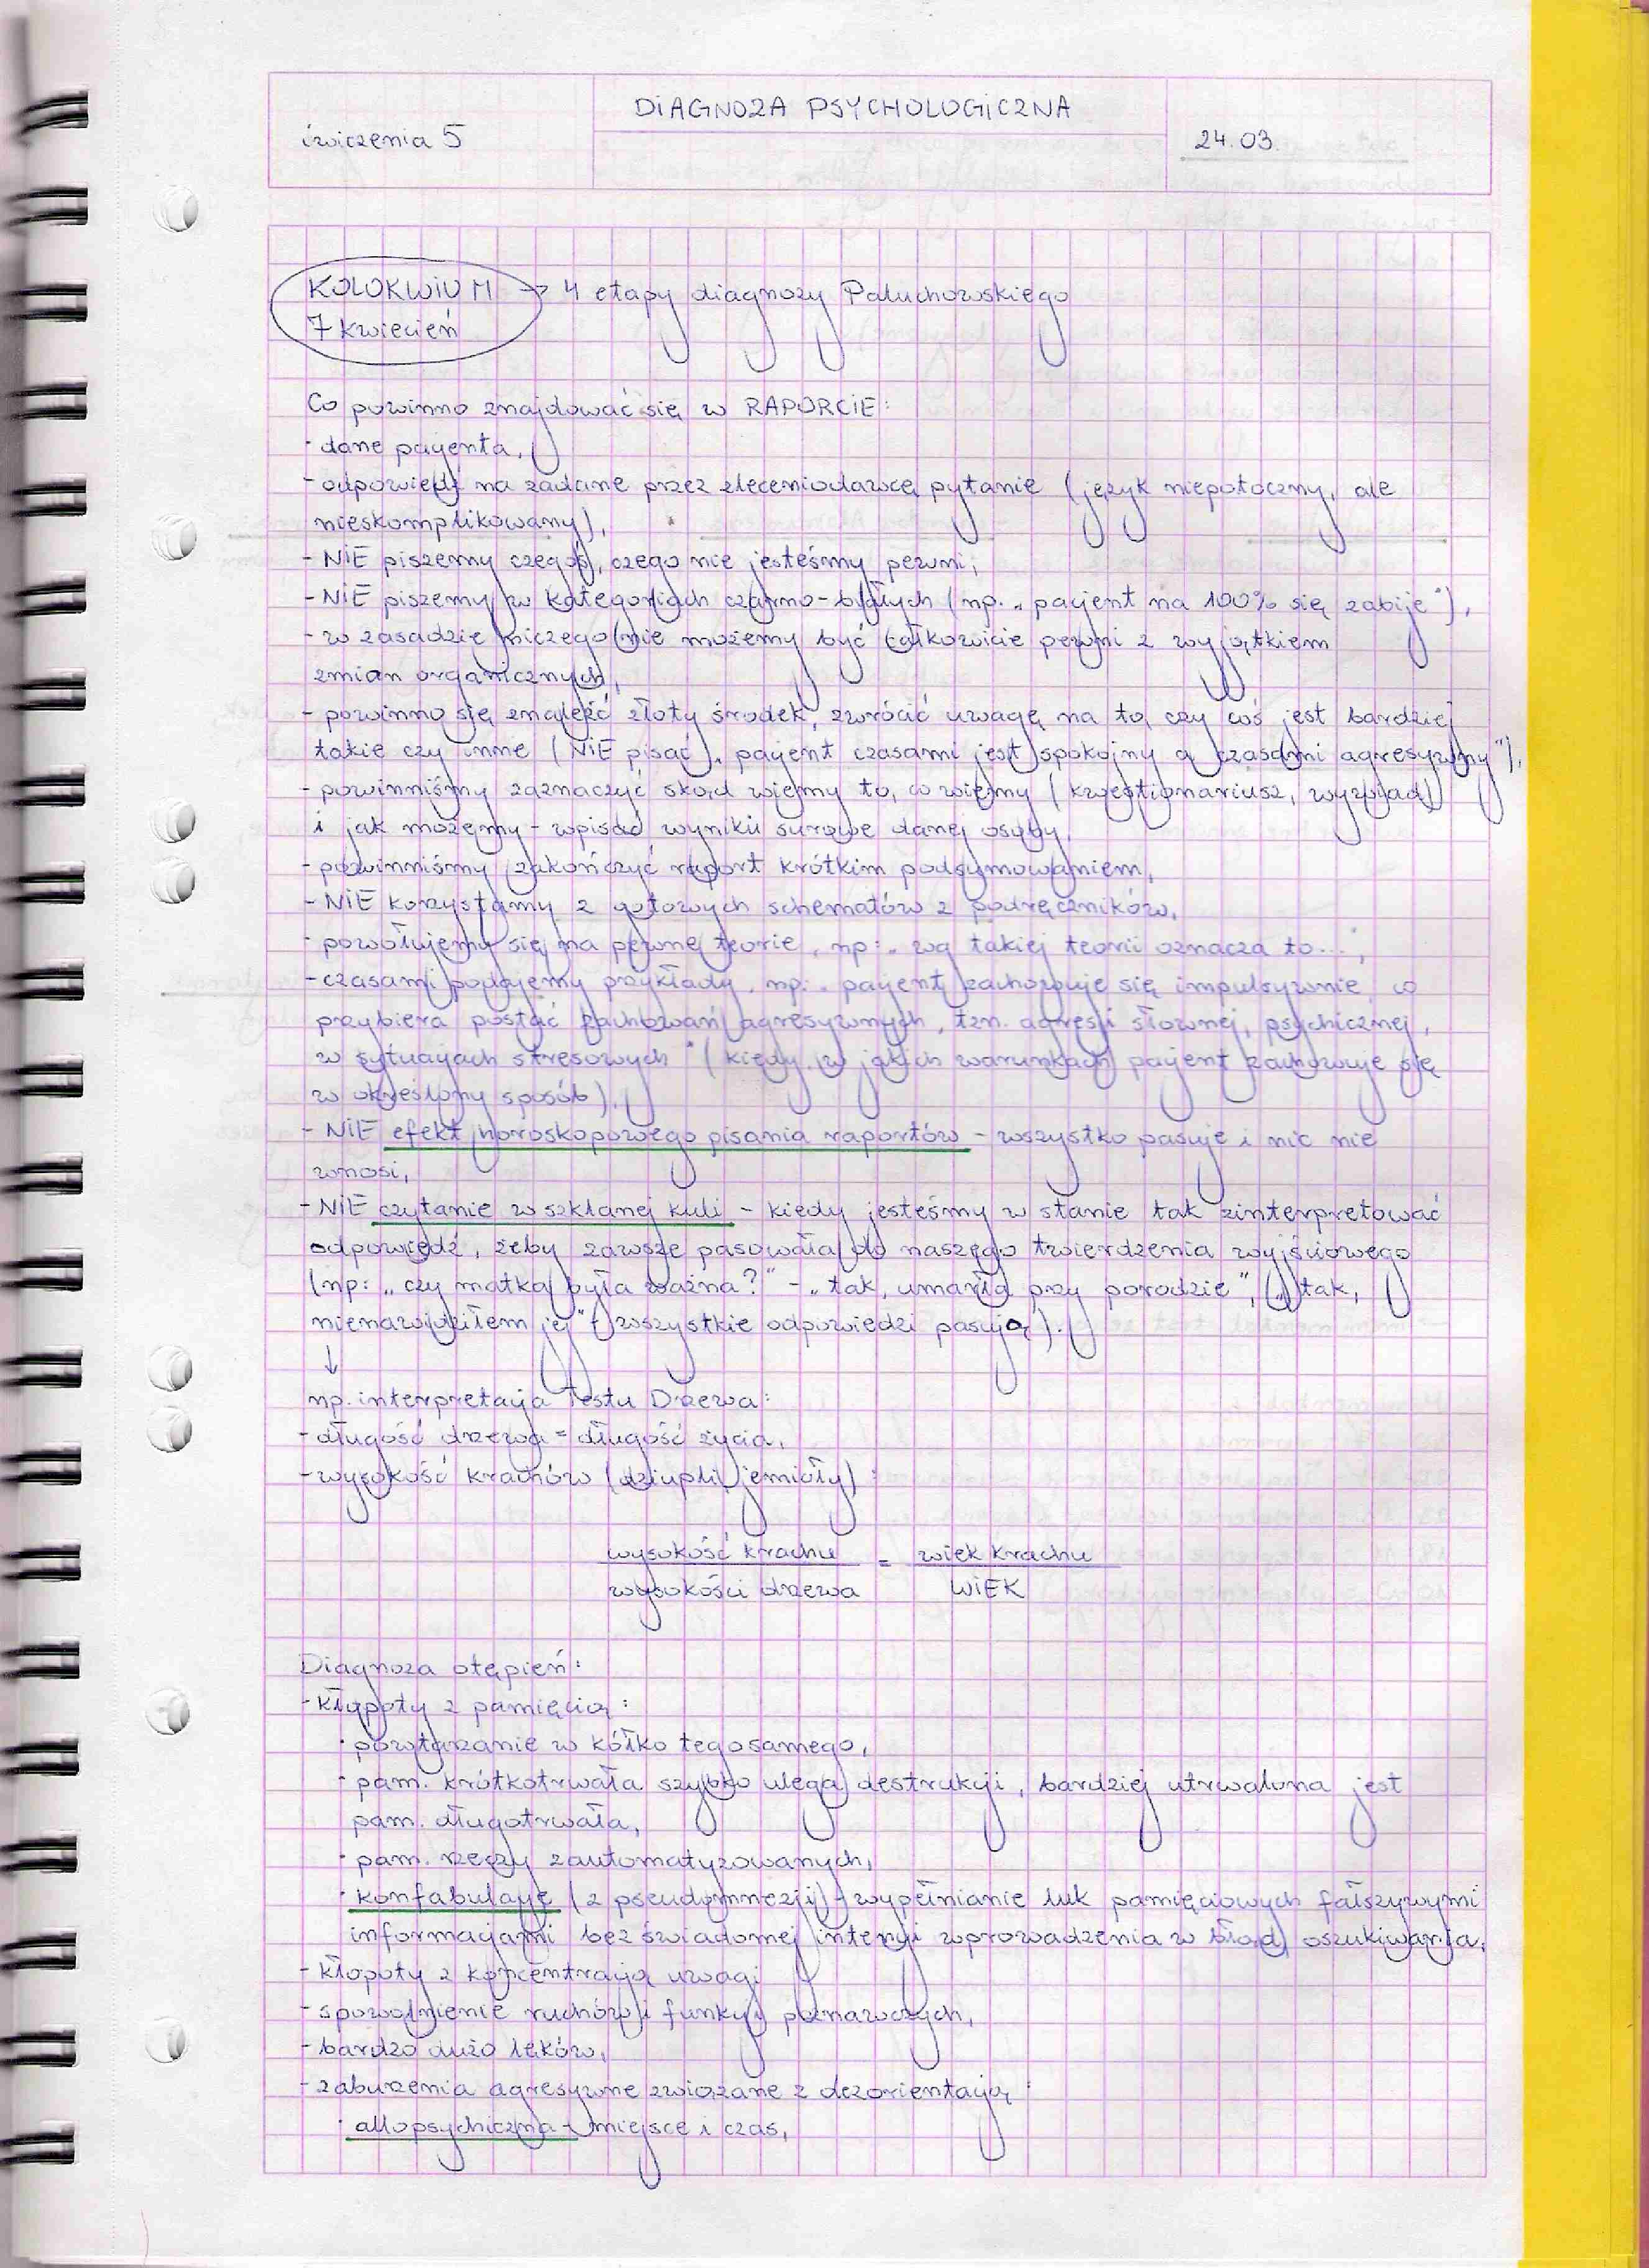 DIAGNOZA PSYCHOLOGICZNA
ćwiczenia 5
24.03.
KOLOKWIUM → 4 etapy diagnozy Paluchowskiego
7 kwiecień
Co powinno znajdować się w RAPORCIE:
- dane pacjenta,
- odpowiedź na zadane przez zleceniodawcę pytanie (język niepotoczny, ale
nieskomplikowany),
- NIE piszemy czegoś, czego nie jesteśmy pewni;
- NIE piszemy w kategoriach czarno-białych (np. „pacjent na 100% się zabije"),
- w zasadzie niczego nie możemy być całkowicie pewni z wyjątkiem
zmian organicznych,
- powinno się znaleźć złoty środek, zwrócić uwagę na to, czy coś jest bardziej
takie czy inne (NIE pisać „pacjent czasami jest spokojny a czasami agresywny"),
- powinniśmy zaznaczyć skąd wiemy to, co wiemy (kwestionariusz, wywiad)
i jak możemy - wpisać wyniku surowe danej osoby,
- powinniśmy zakończyć raport krótkim podsumowaniem,
- NIE korzystamy z gotowych schematów z podręczników,
- powołujemy się na pewne teorie, np: „wg takiej teorii oznacza to...",
- czasami podajemy przykłady, np: „pacjent zachowuje się impulsywnie, co
przybiera postać zachowań agresywnych, tzn. agresji słownej, psychicznej,
w sytuacjach stresowych" (kiedy, w jakich warunkach pacjent zachowuje się
w określony sposób),
- NIE efekt horoskopowego pisania raportów - wszystko pasuje i nic nie
wnosi,
- NIE czytanie w szklanej kuli - kiedy jesteśmy w stanie tak zinterpretować
odpowiedź, żeby zawsze pasowała do naszego twierdzenia wyjściowego
(np: „czy matka była ważna?" - „tak, umarła przy porodzie", „tak,
nienawidziłem jej" - wszystkie odpowiedzi pasują).
↓
np. interpretacja Testu Drzewa:
- długość drzewa = długość życia,
- wysokość krachów (dziupli, jemioły):
wysokość krachu = wiek krachu
wysokości drzewa WIEK
Diagnoza otępień:
- kłopoty z pamięcią:
· powtarzanie w kółko tego samego,
· pam. krótkotrwała szybko ulega destrukcji, bardziej utrwalona jest
pam. długotrwała,
· pam. rzeczy zautomatyzowanych,
· konfabulacje (z pseudomnezji) - wypełnianie luk pamięciowych fałszywymi
informacjami bez świadomej intencji wprowadzenia w błąd, oszukiwania,
- kłopoty z koncentracją uwagi
- spowolnienie ruchów i funkcji poznawczych,
- bardzo dużo lęków,
- zaburzenia agresywne związane z dezorientacją:
· allopsychiczna - miejsce i czas,